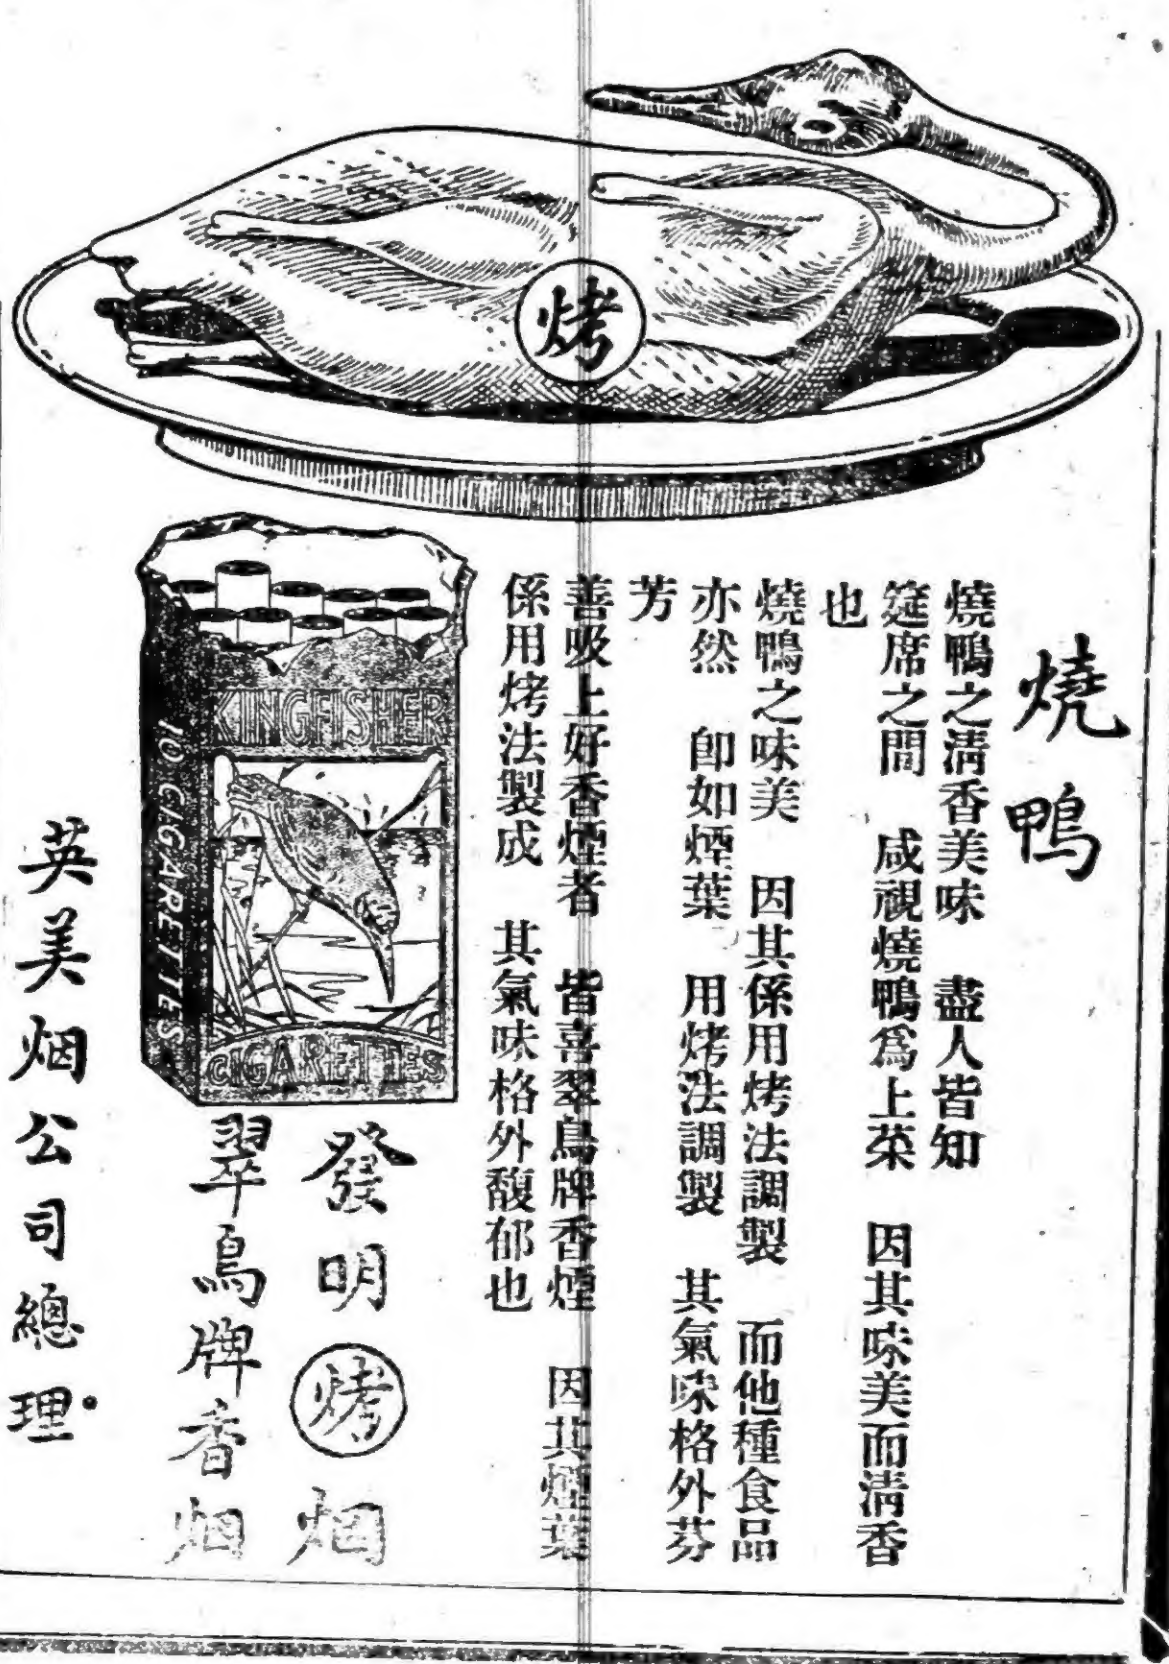 烤
燒鴨
燒鴨之清香美味　盡人皆知
筵席之間　咸視燒鴨爲上菜　因其味美而清香
也
燒鴨之味美　因其係用烤法調製　而他種食品
亦然　卽如煙葉　用烤法調製　其氣味格外芬
芳
善吸上好香煙者　皆喜翠鳥牌香煙　因其煙葉
係用烤法製成　其氣味格外馥郁也
KINGFISHER
10 CIGARETTES
CIGARETTES
發明烤烟
翠鳥牌香烟
英美烟公司總理